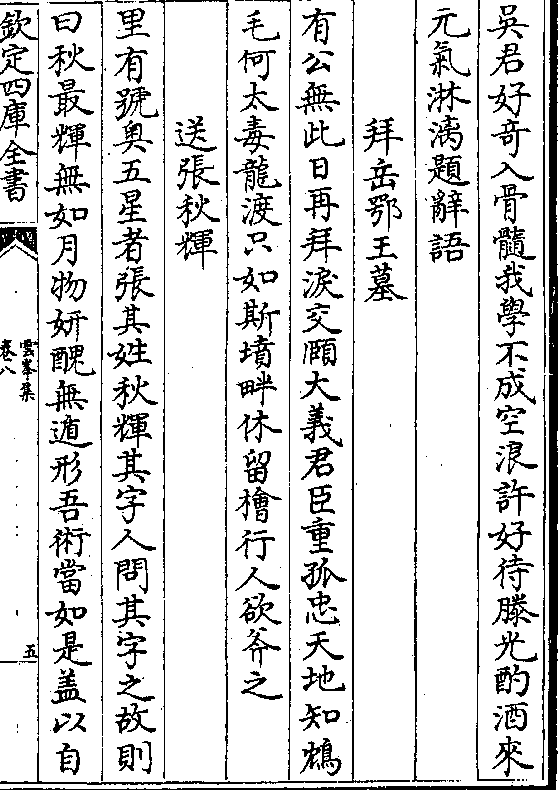 吳君好奇入骨髓我學不成空浪許好待滕光酌酒來
元氣淋漓題辭語
拜岳鄂王墓
有公無此日再拜淚交頤大義君臣重孤忠天地知鴆
毛何太毒龍渡只如斯墳畔休留檜行人欲斧之
送張秋輝
里有號奥五星者張其姓秋輝其字人問其字之故則
曰秋最輝無如月物妍醜無遁形吾術當如是盖以自
欽定四庫全書
雲峯集
卷八
五